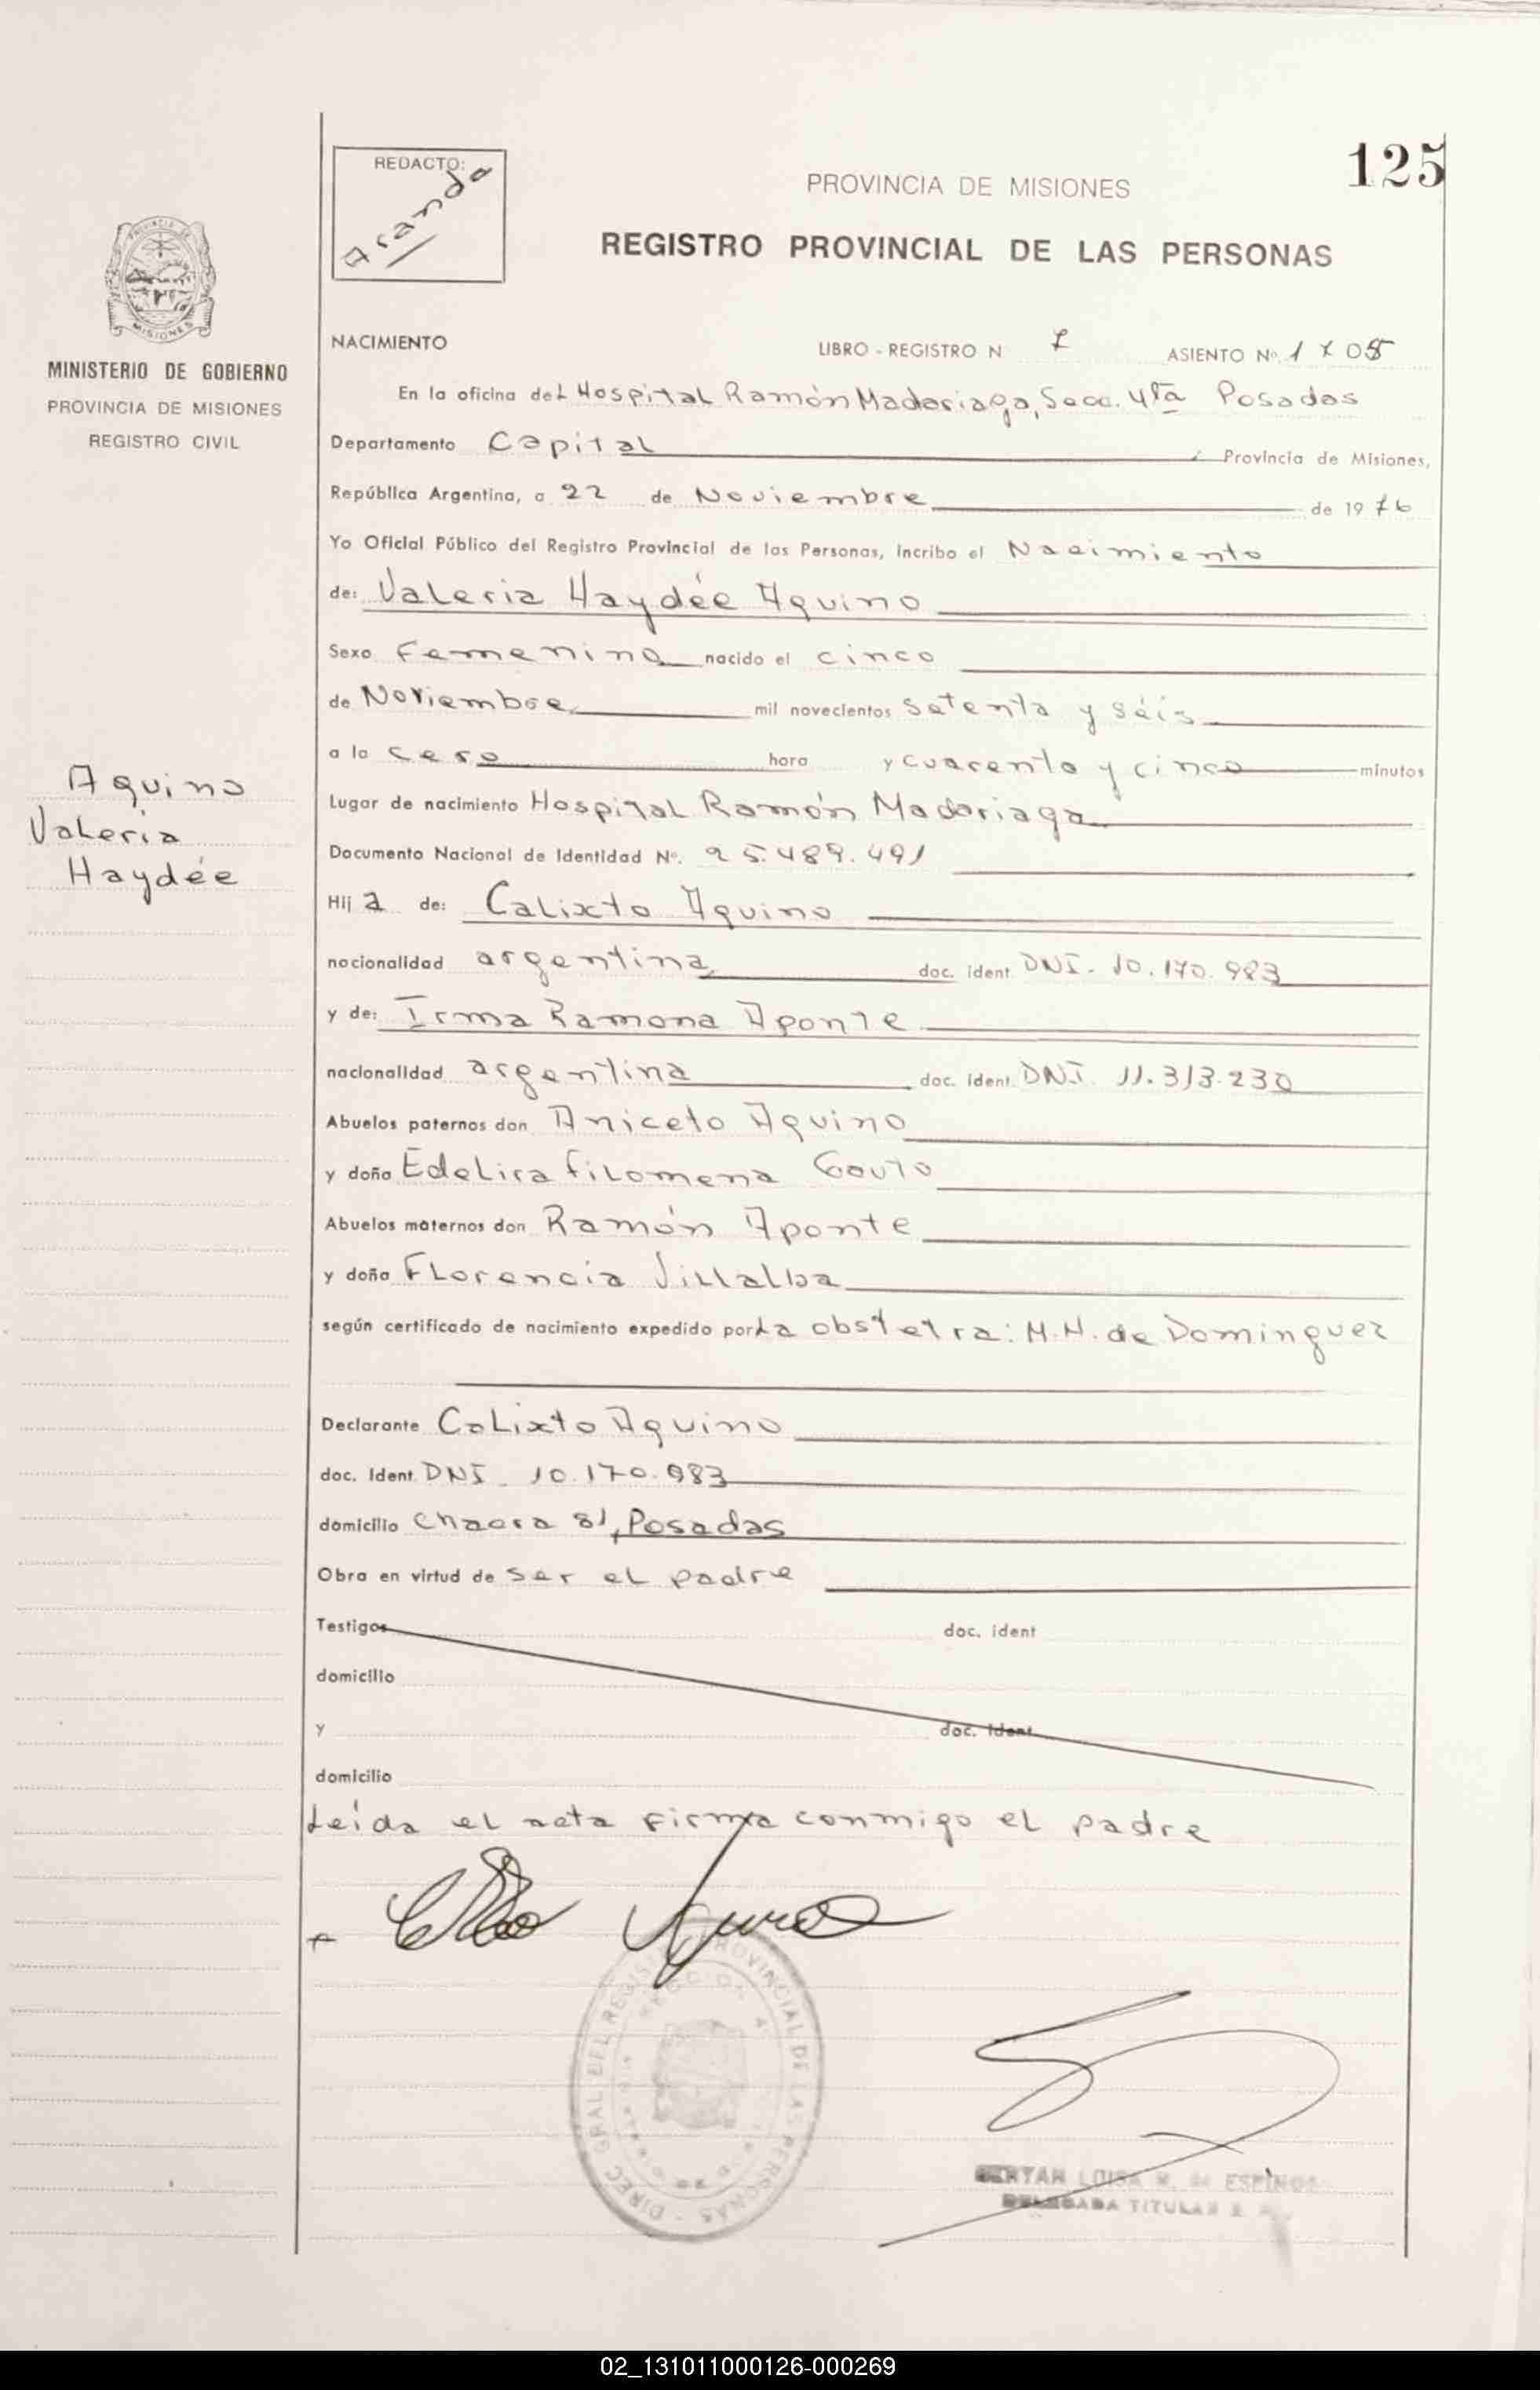 125
REDACTO:
Aranda
PROVINCIA DE MISIONES
REGISTRO PROVINCIAL DE LAS PERSONAS
PROVINCIA DE
MISIONES
MINISTERIO DE GOBIERNO
PROVINCIA DE MISIONES
REGISTRO CIVIL
NACIMIENTO LIBRO - REGISTRO N 7 ASIENTO Nº. 1705
En la oficina del Hospital Ramón Madariaga, Secc. 4ta Posadas
Departamento Capital Provincia de Misiones,
República Argentina, a 22 de Noviembre de 1976
Yo Oficial Público del Registro Provincial de las Personas, incribo el Nacimiento
de: Valeria Haydée Aquino
Sexo Femenino nacido el cinco
de Noviembre mil novecientos setenta y séis
a la cero hora y cuarenta y cinco minutos
Aquino
Valeria
Haydée
Lugar de nacimiento Hospital Ramón Madariaga
Documento Nacional de Identidad Nº. 25.489.491
Hij a de: Calixto Aquino
nacionalidad argentina doc. ident. DNI - 10.170.983
y de: Irma Ramona Aponte
nacionalidad argentina doc. ident. DNI. 11.313.230
Abuelos paternos don Aniceto Aquino
y doña Edelira Filomena Gouto
Abuelos maternos don Ramón Aponte
y doña Florencia Villalba
según certificado de nacimiento expedido por La obstetra: M.H. de Dominguez
Declarante Calixto Aquino
doc. Ident. DNI - 10.170.983
domicilio Chacra 81, Posadas
Obra en virtud de ser el padre
Testigos doc. ident
domicilio
y doc. ident
domicilio
Leída el acta firma conmigo el padre
DIREC. GRAL. DEL REGISTRO PROVINCIAL DE LAS PERSONAS
LOUISA M. de ESPINOS
DELEGADA TITULAR
02_131011000126-000269